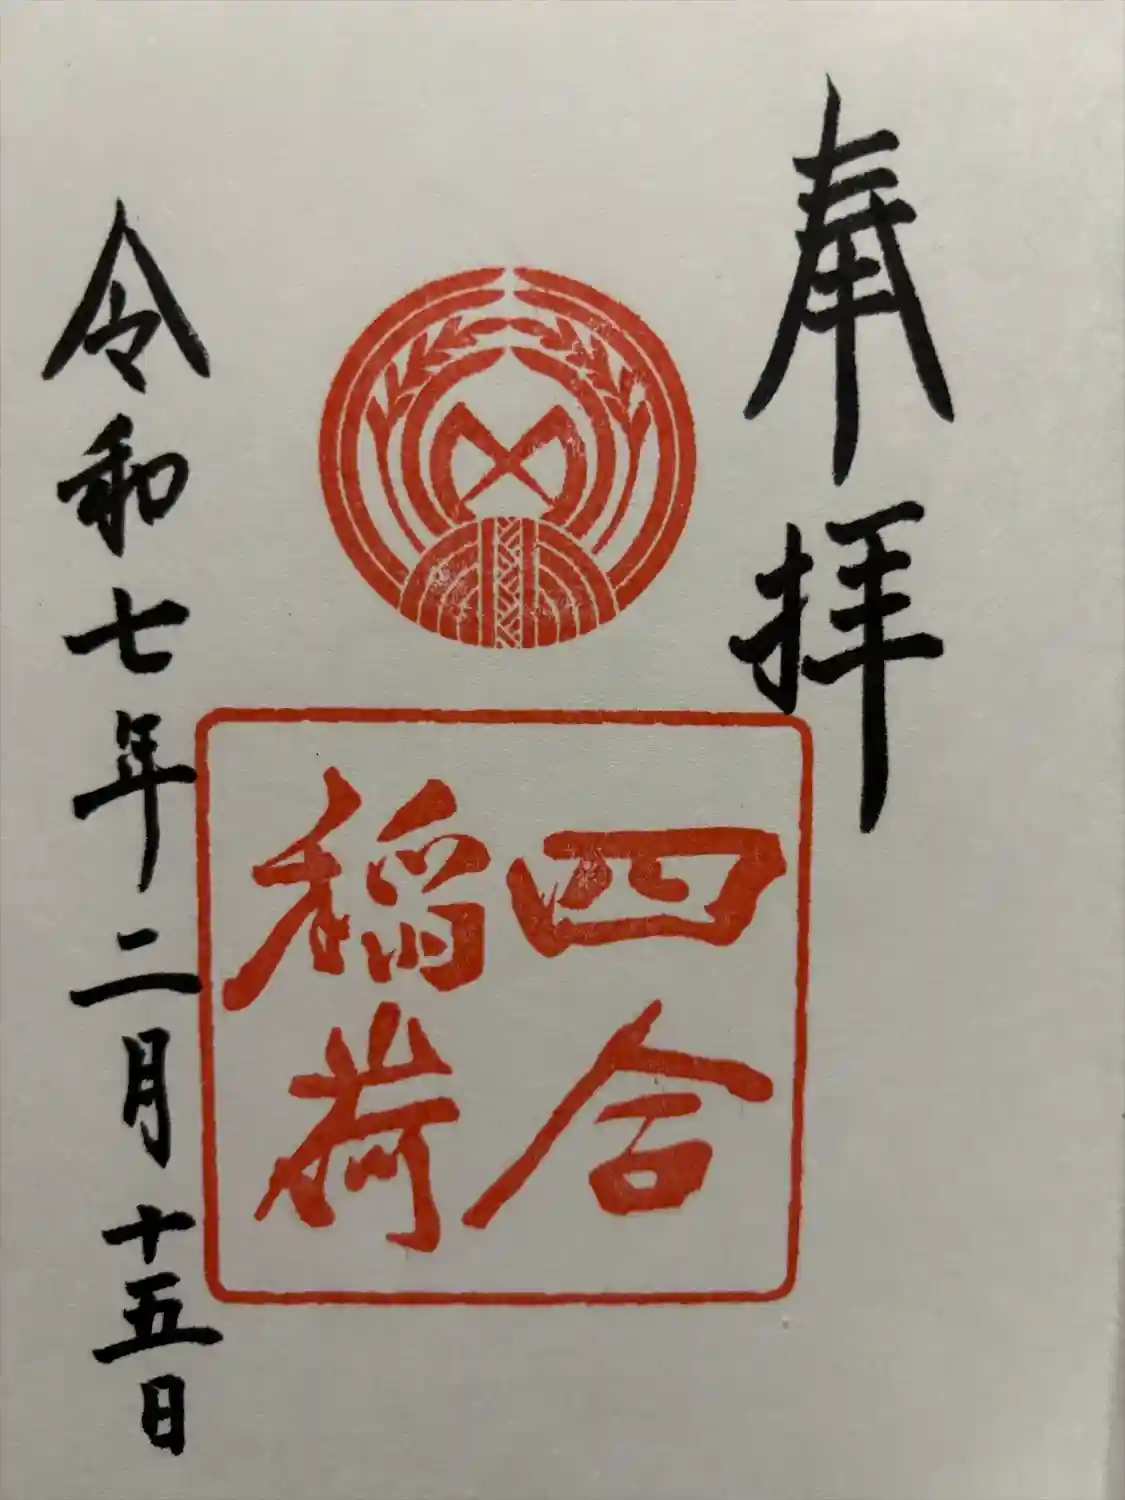 奉拝
四合
稲荷
令和七年二月十五日